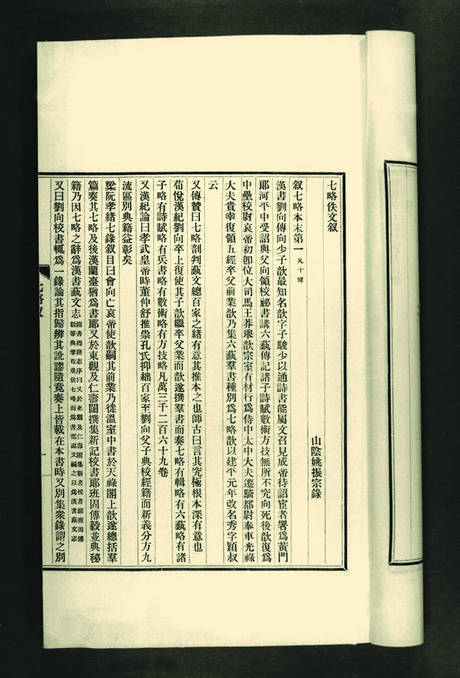 七略佚文叙
山陰姚振宗錄
叙七略本末第一凡十條
漢書劉向傳向少子歆最知名歆字子駿少以通詩書能屬文召見成帝待詔宦者署爲黃門
郎河平中受詔與父向領校祕書講六藝傳記諸子詩賦數術方技無所不究向死後歆復爲
中壘校尉哀帝初卽位大司馬王莽舉歆宗室有材行爲侍中太中大夫遷騎都尉奉車光祿
大夫貴幸復領五經卒父前業歆乃集六藝羣書種別爲七略歆以建平元年改名秀字穎叔
云
又傳贊曰七略剖判藝文總百家之緒有意其推本之也師古曰言其究極根本深有意也
荀悅漢紀劉向卒上復使其子歆繼卒父業而歆遂撰羣書而奏七略有輯略有六藝略有諸
子略有詩賦略有兵書略有數術略有方技略凡萬三千二百六十九卷
又漢紀論曰孝武皇帝時董仲舒推崇孔氏抑絀百家至劉向父子典校經籍而新義分方九
流區別典籍益彰矣
梁阮孝緒七錄叙目曰會向亡哀帝使歆嗣其前業乃徙溫室中書於天祿閣上歆遂總括羣
篇奏其七略及後漢蘭臺猶爲書部又於東觀及仁壽闥撰集新記校書郎班固傅毅並典秘
籍乃因七略之辭爲漢書藝文志
又曰劉向校書輒爲一錄論其指歸辨其訛謬隨竟奏上皆載在本書時又別集衆錄謂之別